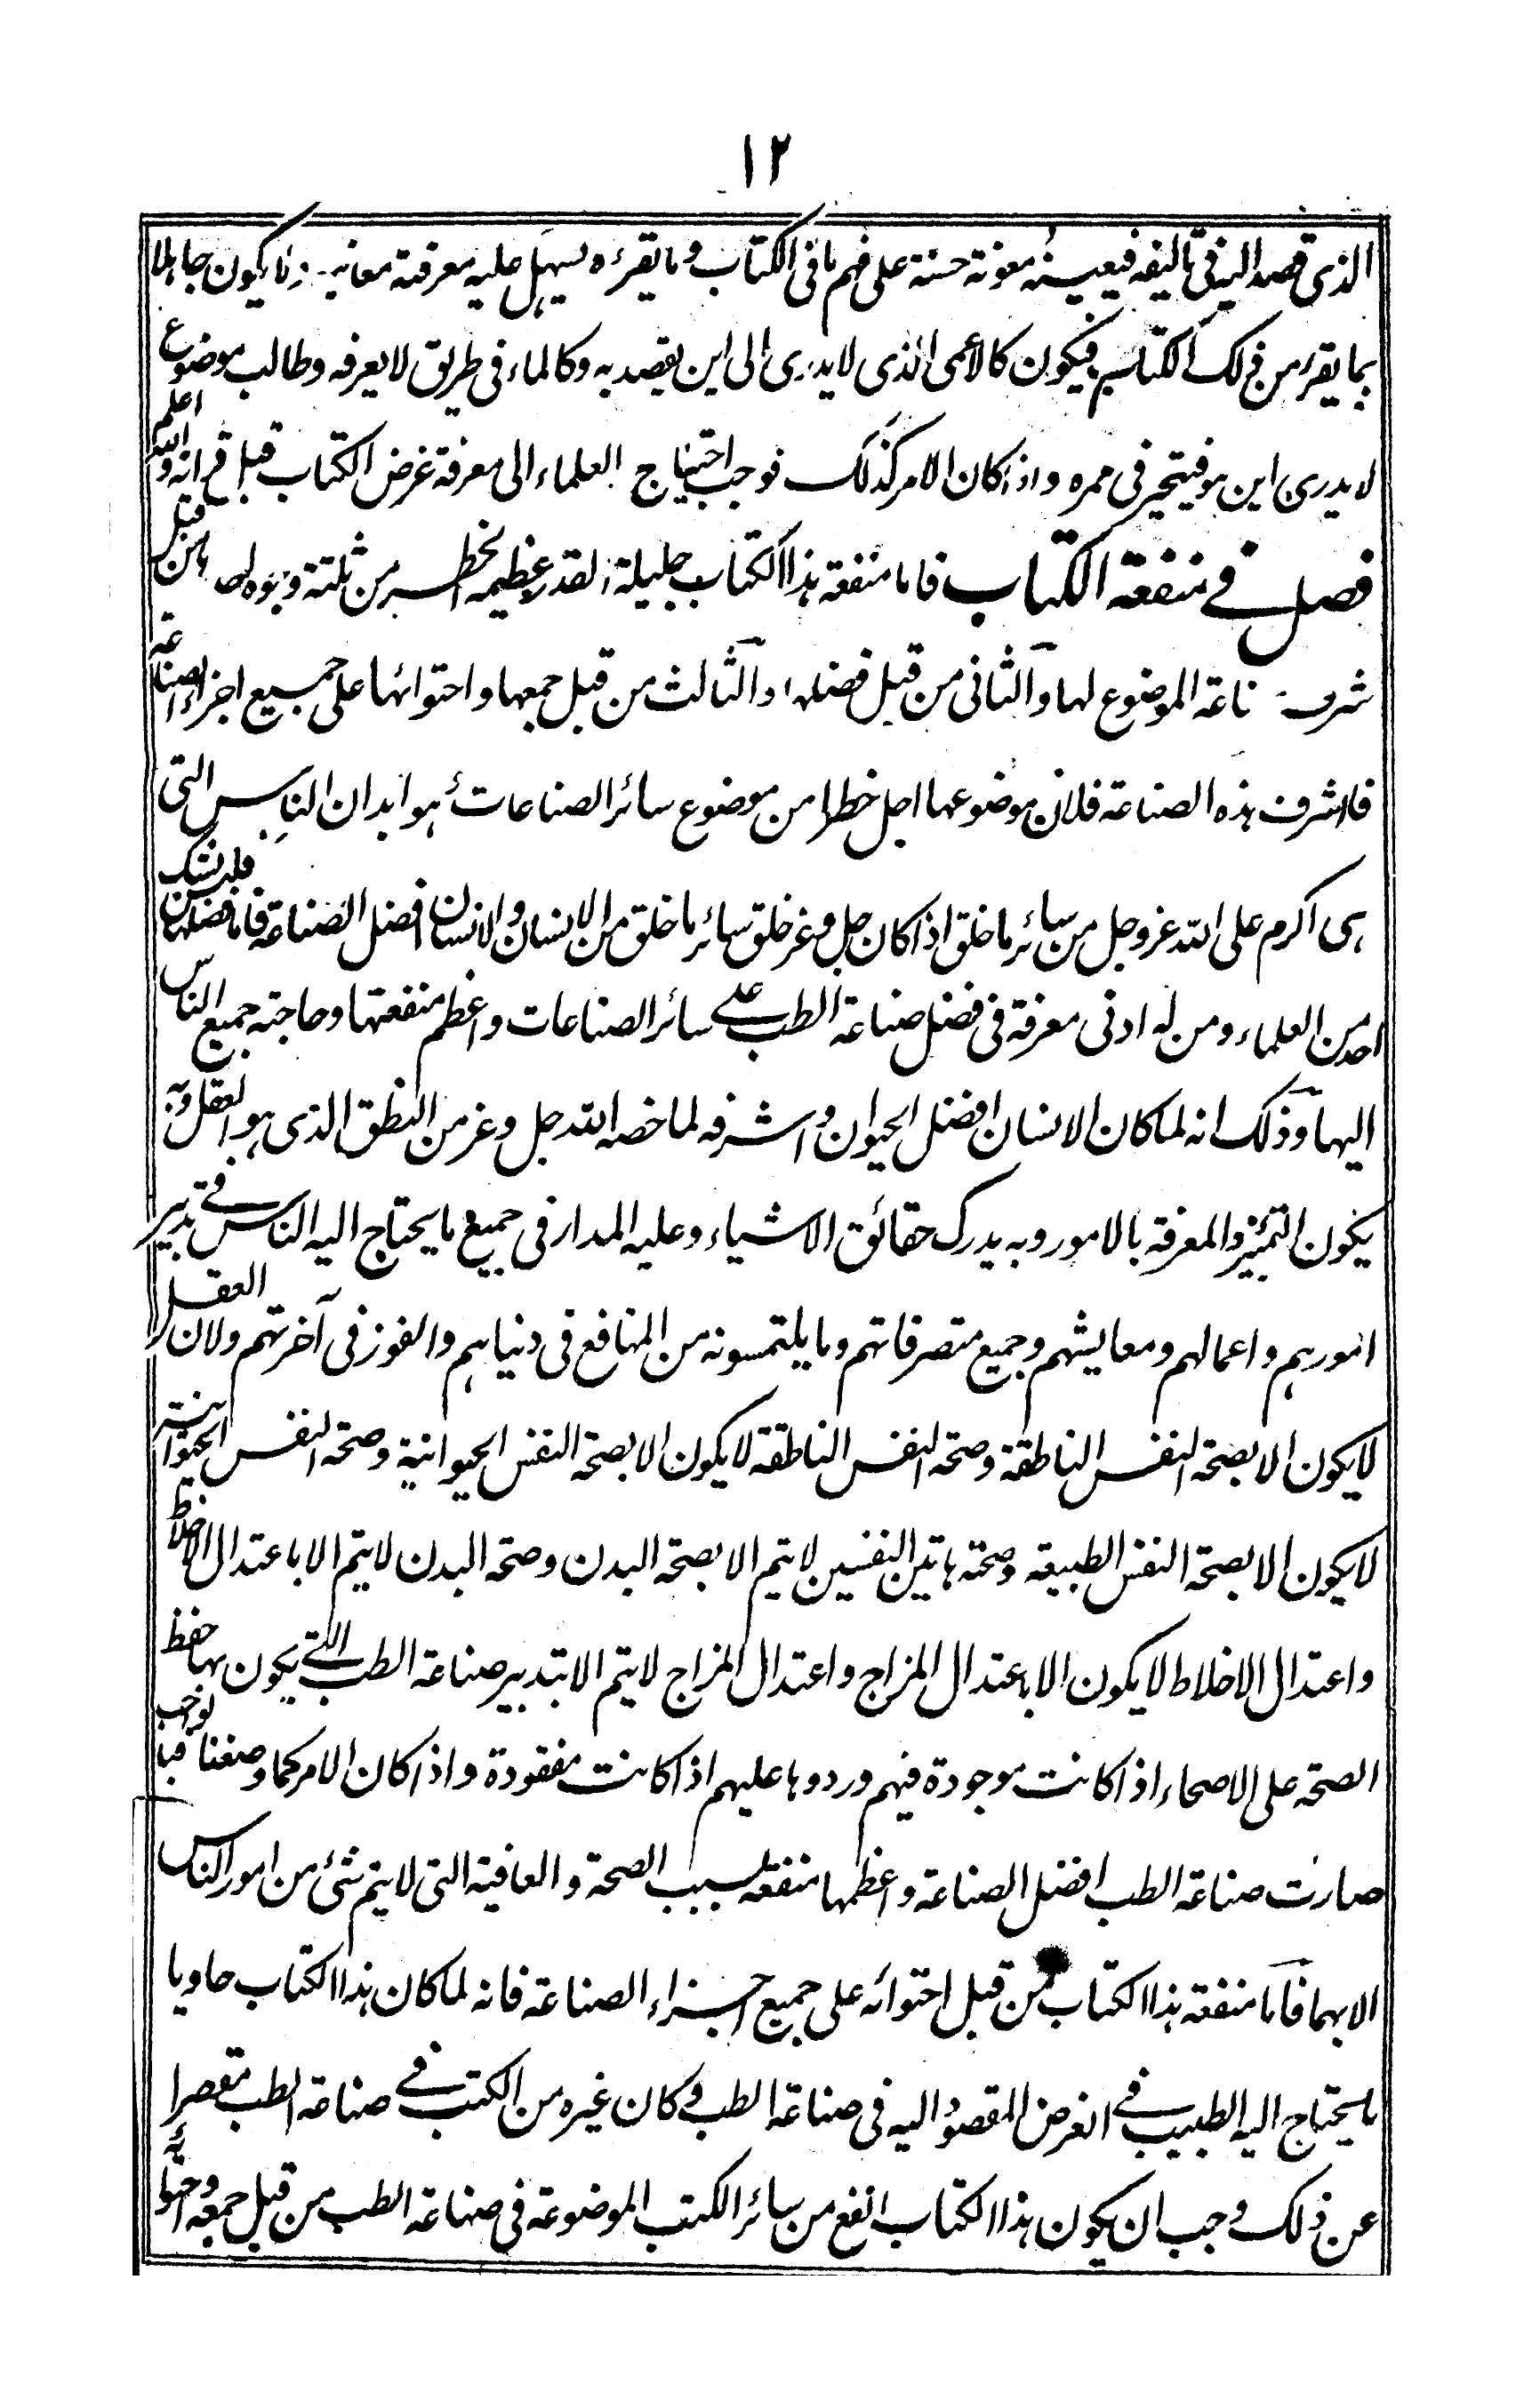 ١٢
الذى قصد اليه فى تاليفه فيعينه معونة حسنة على فهم ما فى الكتاب وما يقرءه ليسهل عليه معرفته معانيه يكون جاهلا
بما يقرء من ذلك الكتاب فيكون كالاعمى الذى لا يدرى الى اين يقصد به وكالماء فى طريق لا يعرفه وطالب موضوع
لا يدرى اين هو فيتحير فى ممره واذا كان الامر كذلك فوجب احتياج العلماء الى معرفة غرض الكتاب قبل قرأته والله اعلم
فصل فى منفعة الكتاب فاما منفعة هذا الكتاب جليلة القدر عظيمة الخطر من ثلثة وجوه احدها من قبل
شرف ناعة الموضوع لها والثانى من قبل فضلها والثالث من قبل جمعها واحتوائها على جميع اجزاء الصناعة
فاشرف هذه الصناعة فلان موضوعها اجل خطرا من موضوع سائر الصناعات هو ابدان الناس التى
هى اكرم على الله عز وجل من سائر ما خلق اذ كان جل وعز خلق سائر ما خلق من الانسان والانسان افضل الصناعة فاما فضلها فليس يشك
احد من العلماء ومن له ادنى معرفة فى فضل صناعة الطب على سائر الصناعات واعظم منفعتها وحاجته جميع الناس
اليها وذلك انه لما كان الانسان افضل الحيوان واشرفه لما خصه الله جل وعز من النطق الذى هو العقل وبه
يكون التميز والمعرفة بالامور وبه يدرك حقائق الاشياء وعليه المدار فى جميع ما يحتاج اليه الناس فى تدبير
امورهم واعمالهم ومعايشهم وجميع متصرفاتهم وما يلتمسونه من المنافع فى دنياهم والفوز فى آخرتهم ولان العقل
لا يكون الا بصحة النفس الناطقة وصحة النفس الناطقة لا يكون الا بصحة النفس الحيوانية وصحة النفس الحيوانية
لا يكون الا بصحة النفس الطبيعة وصحة هاتين النفسين لا يتم الا بصحة البدن وصحة البدن لا يتم الا باعتدال الاخلاط
واعتدال الاخلاط لا يكون الا باعتدال المزاج واعتدال المزاج لا يتم الا بتدبير صناعة الطب التى يكون بها حفظ
الصحة على الاصحاء اذا كانت موجودة فيهم وردوها عليهم اذا كانت مفقودة واذا كان الامر كما وصفنا فبالواجب
صارت صناعة الطب افضل الصناعة واعظمها منفعة بسبب الصحة والعافية التى لا يتم شئ من امور الناس
الا بهما فاما منفعة هذا الكتاب من قبل احتوائه على جميع اجزاء الصناعة فانه لما كان هذا الكتاب حاويا
ما يحتاج اليه الطبيب فى الغرض المقصود اليه فى صناعة الطب وكان غيره من الكتب فى صناعة الطب مقصرا
عن ذلك وجب ان يكون هذا الكتاب انفع من سائر الكتب الموضوعة فى صناعة الطب من قبل جمعه واحتوائه